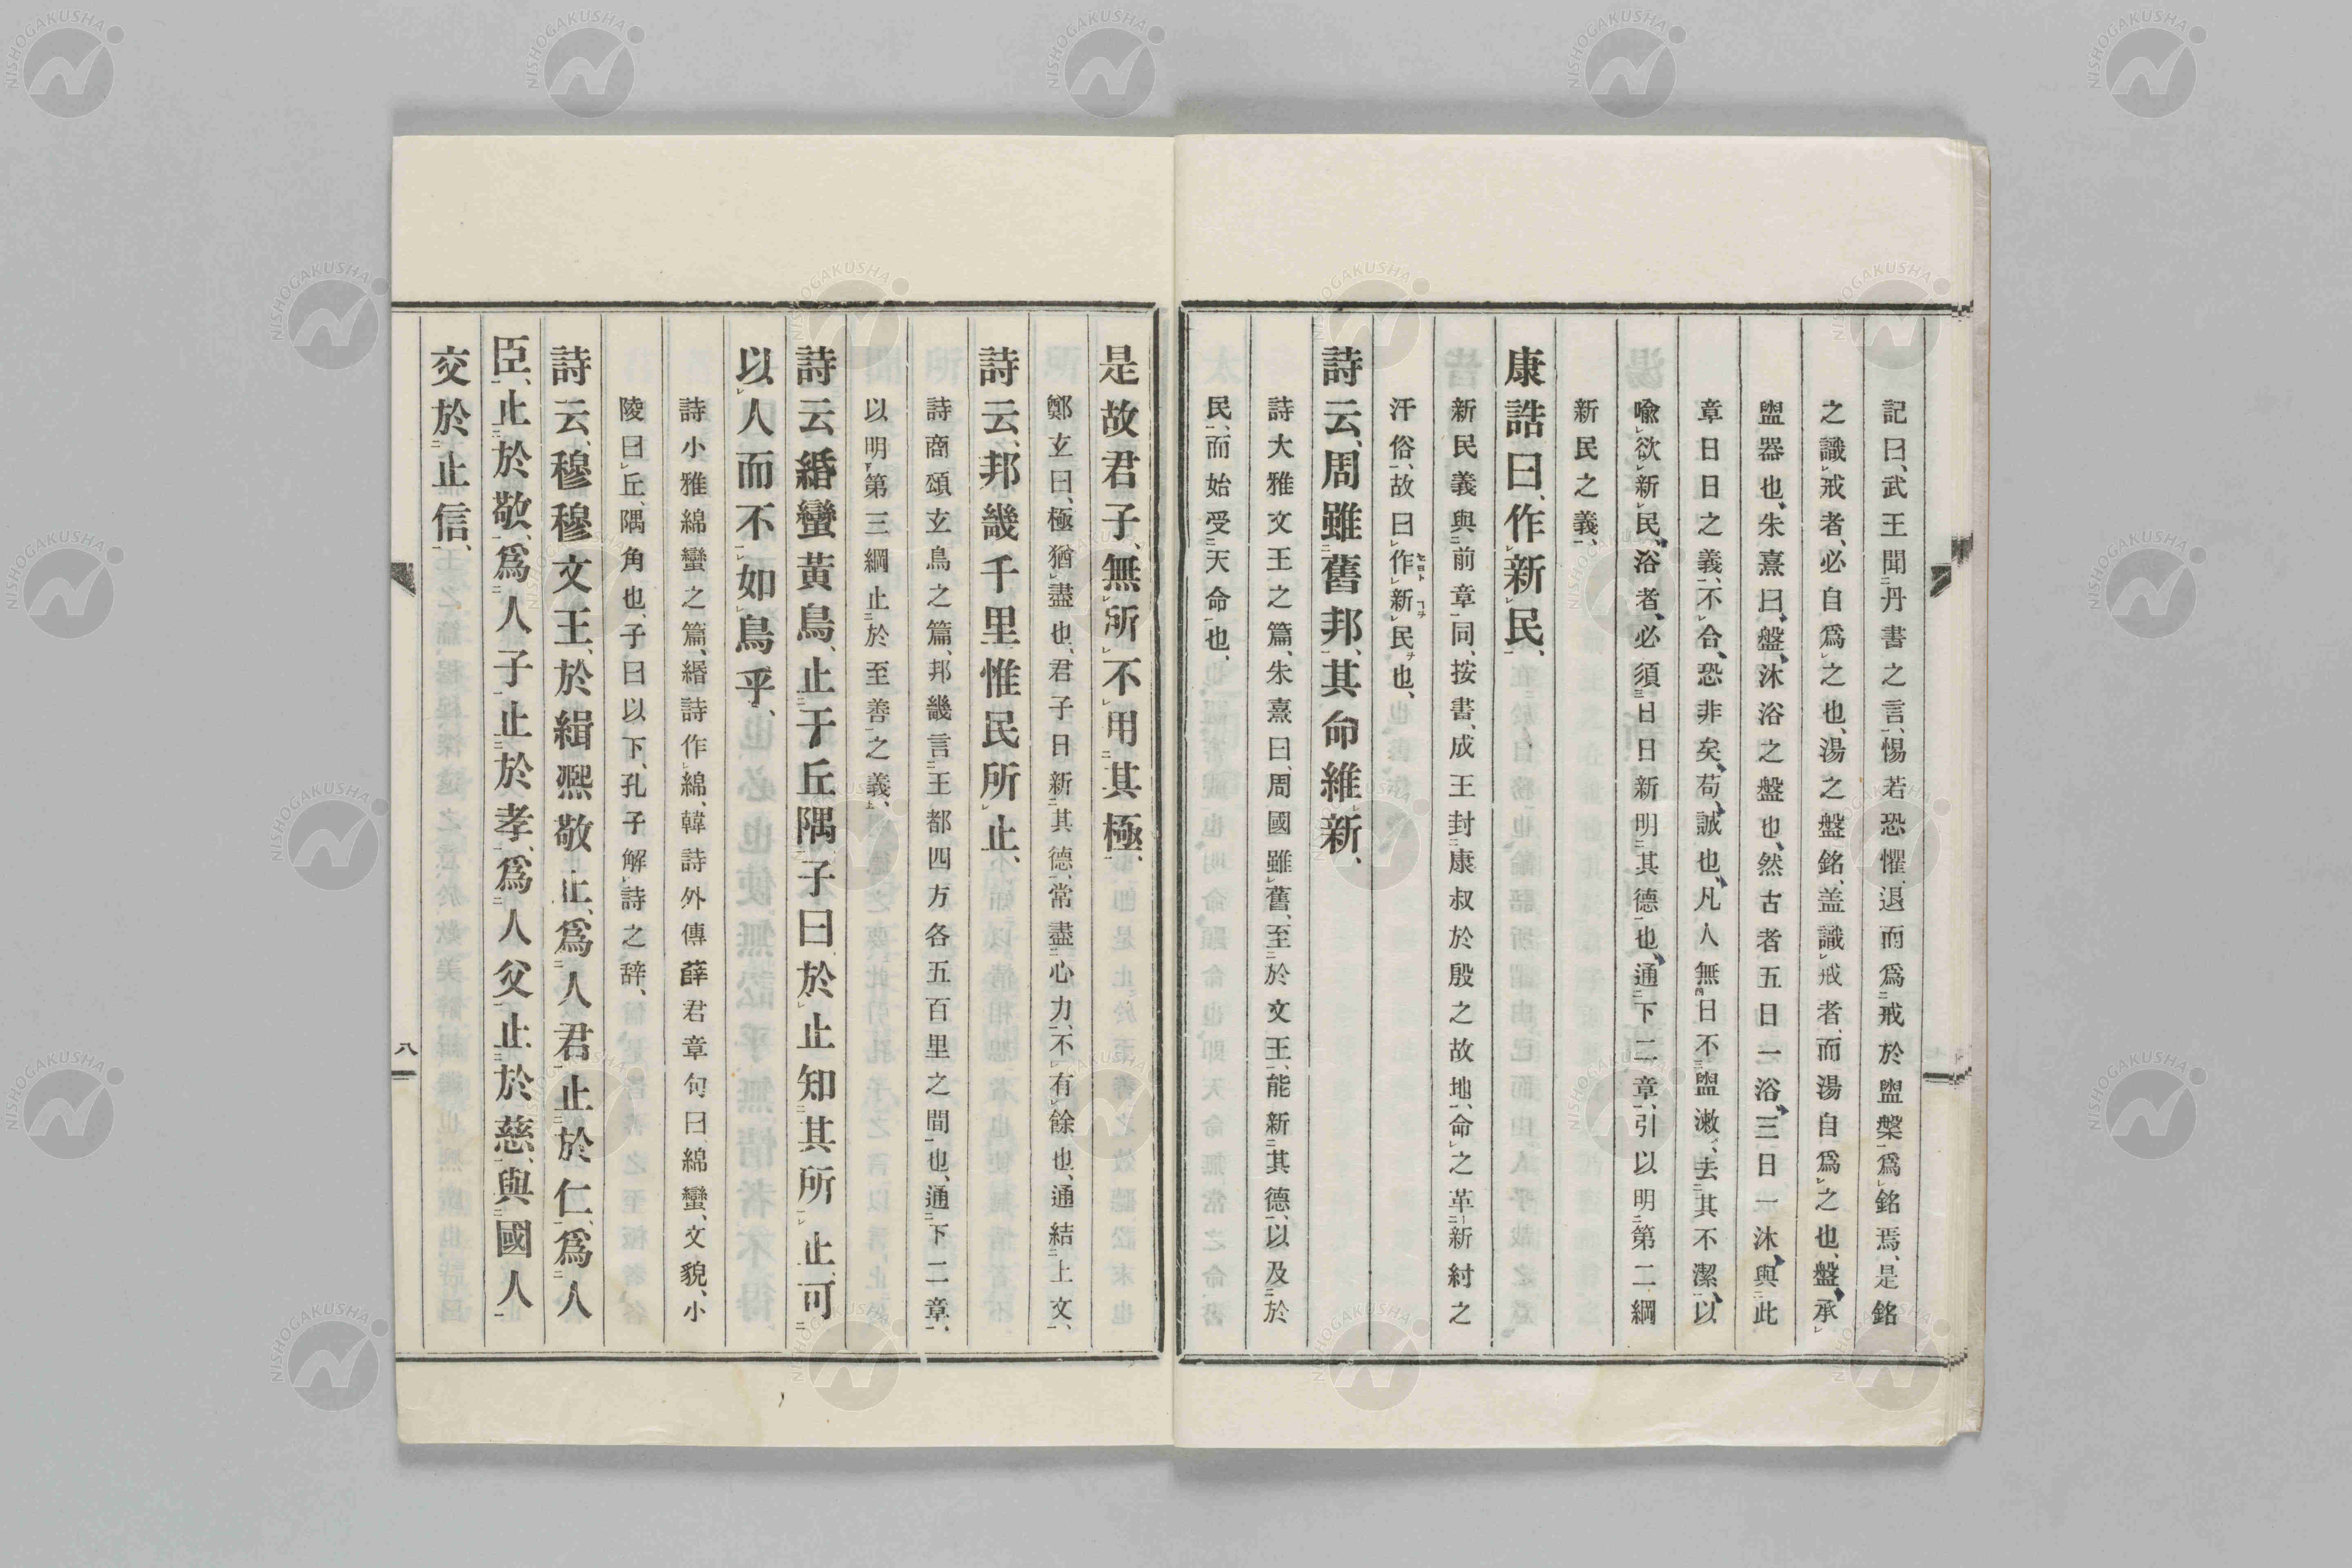 記曰、武王聞丹書之言、惕若恐懼、退而爲戒於盥槃、爲銘焉、是銘
之識戒者、必自爲之也、湯之盤銘、盖識戒者、而湯自爲之也、盤、承
盥器也、朱熹曰、盤、沐浴之盤也、然古者五日一浴、三日一沐、與此
章日日之義、不合、恐非矣、苟、誠也、凡人無日不盥漱、去其不潔、以
喩欲新民、浴者、必須日日新明其德也、通下二章、引以明第二綱
新民之義、
康誥曰、作新民、
新民義與前章同、按書、成王封康叔於殷之故地、命之革新紂之
汗俗、故曰作新民也、
詩云、周雖舊邦、其命維新、
詩大雅文王之篇、朱熹曰、周國雖舊、至於文王、能新其德、以及於
民、而始受天命也、
是故君子、無所不用其極、
鄭玄曰、極猶盡也、君子日新其德、常盡心力、不有餘也、通結上文、
詩云、邦畿千里惟民所止、
詩商頌玄鳥之篇、邦畿言王都四方各五百里之間也、通下二章、
以明第三綱止於至善之義、
詩云緡蠻黃鳥、止于丘隅、子曰、於止知其所止、可
以人而不如鳥乎、
詩小雅綿蠻之篇、緡詩作綿、韓詩外傳薛君章句曰、綿蠻、文貌、小
陵曰丘、隅角也、子曰以下、孔子解詩之辞、
詩云、穆穆文王、於緝凞敬止、爲人君止於仁、爲人
臣、止於敬、爲人子止於孝、爲人父止於慈、與國人
交於止信、
八
NISHOGAKUSHA